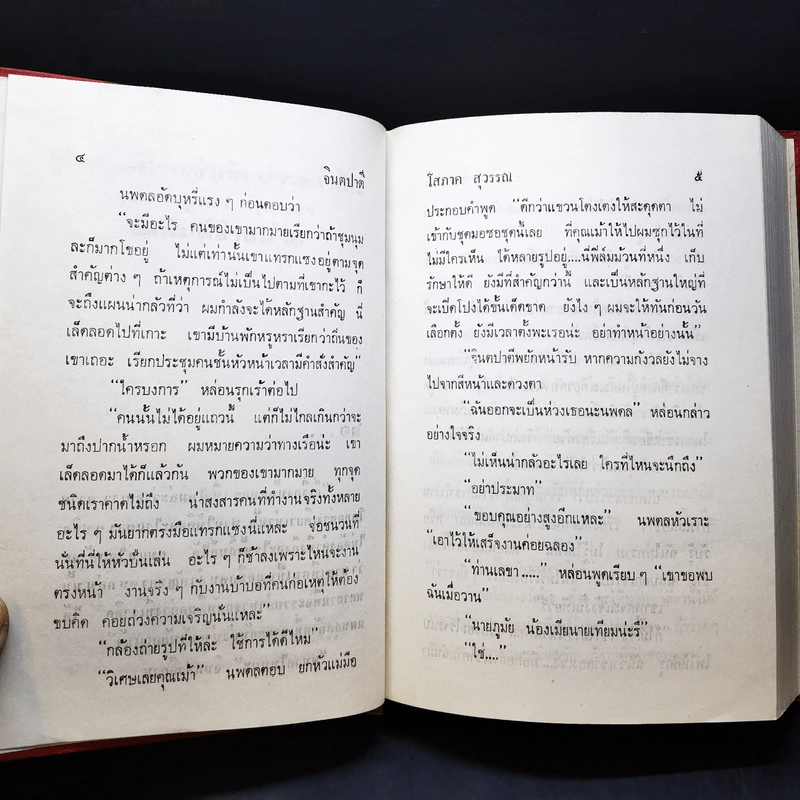 ๔
จินตปาตี
นพดลอัดบุหรี่แรง ๆ ก่อนตอบว่า
“จะมีอะไร คนของเขามากมายเรียกว่าถ้าชุมนุม
ละก็มากโขอยู่ ไม่แต่เท่านั้นเขาแทรกแซงอยู่ตามจุด
สำคัญต่าง ๆ ถ้าเหตุการณ์ไม่เป็นไปตามที่เขากะไว้ ก็
จะถึงแผนน่ากลัวที่ว่า ผมกำลังจะได้หลักฐานสำคัญ นี่
เล็ดลอดไปที่เกาะ เขามีบ้านพักหรูหราเรียกว่าถิ่นของ
เขาเถอะ เรียกประชุมคนชั้นหัวหน้าเวลามีคำสั่งสำคัญ”
“ใครบงการ” หล่อนรุกเร้าต่อไป
“คนนั้นไม่ได้อยู่แถวนี้ แต่ก็ไม่ไกลเกินกว่าจะ
มาถึงปากน้ำหรอก ผมหมายความว่าทางเรือน่ะ เขา
เล็ดลอดมาได้ก็แล้วกัน พวกของเขามากมาย ทุกจุด
ชนิดเราคาดไม่ถึง น่าสงสารคนที่ทำงานจริงทั้งหลาย
อะไร ๆ มันยากตรงมือแทรกแซงนี่แหละ จ่อชนวนที่
นั่นที่นี่ให้หัวปั่นเล่น อะไร ๆ ก็ช้าลงเพราะไหนจะงาน
ตรงหน้า งานจริง ๆ กับงานบ้าบอที่คนก่อเหตุให้ต้อง
ขบคิด คอยถ่วงความเจริญนั่นแหละ”
“กล้องถ่ายรูปที่ให้ล่ะ ใช้การได้ดีไหม”
“วิเศษเลยคุณเม้า” นพดลตอบ ยกหัวแม่มือ
โสภาค สุวรรณ
๕
ประกอบคำพูด “ดีกว่าแขวนโตงเตงให้สะดุดตา ไม่
เข้ากับชุดมอซอชุดนี้เลย ที่คุณเม้าให้ไปผมซุกไว้ในที่
ไม่มีใครเห็น ได้หลายรูปอยู่....นี่ฟิล์มม้วนที่หนึ่ง เก็บ
รักษาให้ดี ยังมีที่สำคัญกว่านี้ และเป็นหลักฐานใหญ่ที่
จะเปิดโปงได้ขั้นเด็ดขาด ยังไง ๆ ผมจะให้ทันก่อนวัน
เลือกตั้ง ยังมีเวลาตั้งพะเรอน่ะ อย่าทำหน้าอย่างนั้น”
จินตปาตีพยักหน้ารับ หากความกังวลยังไม่จาง
ไปจากสีหน้าและดวงตา
“ฉันออกจะเป็นห่วงเธอนะนพดล” หล่อนกล่าว
อย่างใจจริง
“ไม่เห็นน่ากลัวอะไรเลย ใครที่ไหนจะนึกถึง”
“อย่าประมาท”
“ขอบคุณอย่างสูงอีกแหละ” นพดลหัวเราะ
“เอาไว้ให้เสร็จงานค่อยฉลอง”
“ท่านเลขา.....” หล่อนพูดเรียบ ๆ “เขาขอพบ
ฉันเมื่อวาน”
“นายภูมัย น้องเมียนายเทียมน่ะรึ”
“ใช่....”